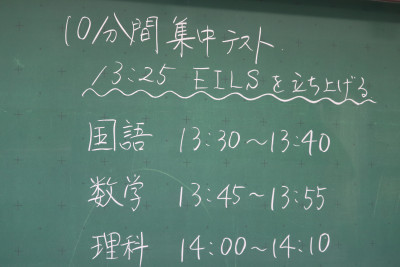 10分間集中テスト.
13:25 EILSを立ち上げる
国語 13:30~13:40
数学 13:45~13:55
理科 14:00~14:10